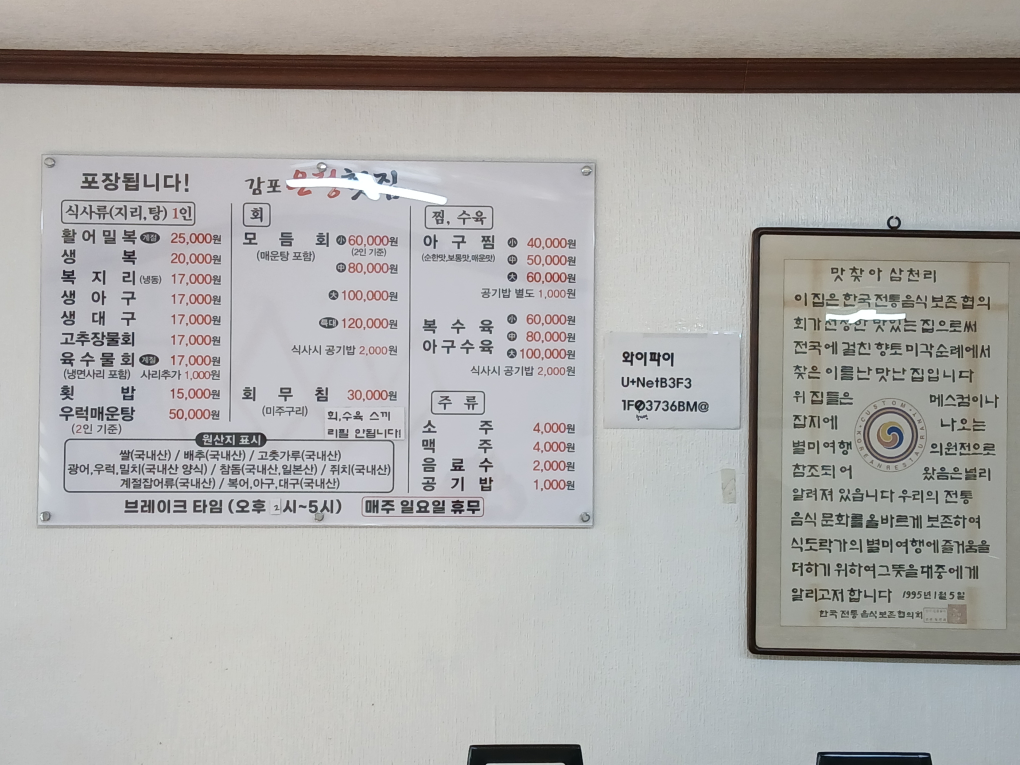 포장됩니다!
감포 은정횟집
식사류(지리,탕) 1인
활어밀복 계절 25,000원
생복 20,000원
복지리(냉동) 17,000원
생아구 17,000원
생대구 17,000원
고추장물회 17,000원
육수물회 계절 17,000원
(냉면사리 포함) 사리추가 1,000원
횟밥 15,000원
우럭매운탕 50,000원
(2인 기준)
회
모듬회 小 60,000원
(매운탕 포함) (2인 기준)
中 80,000원
大 100,000원
특대 120,000원
식사시 공기밥 2,000원
회무침 30,000원
(미주구리)
회,수육 스끼
리필 안됩니다!
찜, 수육
아구찜 小 40,000원
(순한맛,보통맛,매운맛) 中 50,000원
大 60,000원
공기밥 별도 1,000원
복수육 小 60,000원
中 80,000원
아구수육 大 100,000원
식사시 공기밥 2,000원
주류
소주 4,000원
맥주 4,000원
음료수 2,000원
공기밥 1,000원
원산지 표시
쌀(국내산) / 배추(국내산) / 고춧가루(국내산)
광어,우럭,밀치(국내산 양식) / 참돔(국내산,일본산) / 쥐치(국내산)
계절잡어류(국내산) / 복어,아구,대구(국내산)
브레이크 타임 (오후 2시~5시) 매주 일요일 휴무
와이파이
U+NetB3F3
1F03736BM@
맛찾아 삼천리
이 집은 한국 전통음식 보존 협의
회가 선정한 맛있는 집으로써
전국에 걸친 향토 미각순례에서
찾은 이름난 맛난 집입니다
위 집들은 메스컴이나
잡지에 나오는
별미여행 의 원전으로
참조되어 왔음은 널리
알려져 있습니다 우리의 전통
음식 문화를 올바르게 보존하여
식도락가의 별미여행에 즐거움을
더하기 위하여 그 뜻을 대중에게
알리고저 합니다 1995년 1월 5일
한국 전통 음식 보존 협의회
CUSTOM
KOREAN RESTAURANT